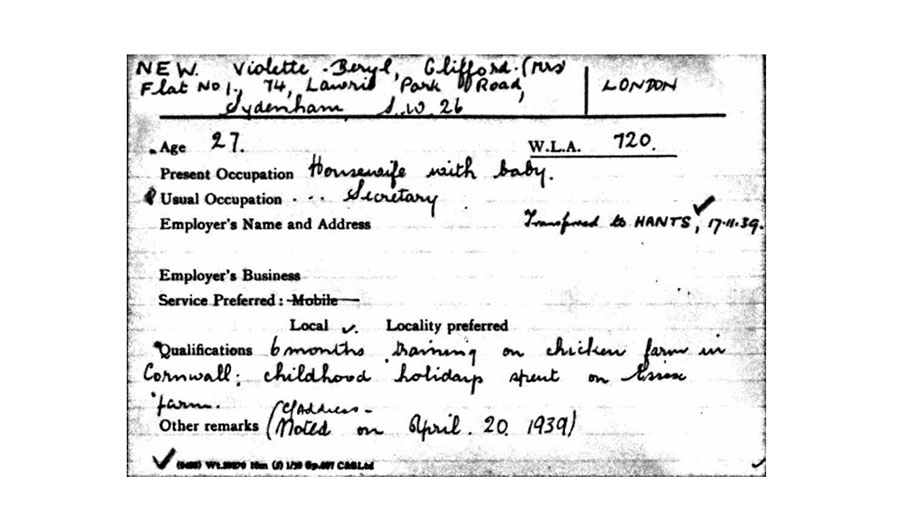 NEW. Violette Beryl, Clifford. (Mrs
Flat No 1., 74, Lawrie Park Road, LONDON
Sydenham S.W. 26
Age 27. W.L.A. 720.
Present Occupation Housewife with baby.
Usual Occupation . . . Secretary
Employer's Name and Address Transferred to HANTS, 17.11.39.
Employer's Business
Service Preferred: Mobile
Local ✓. Locality preferred
Qualifications 6 months training on chicken farm in
Cornwall; childhood holidays spent on Essex
farm.
(C/Address -
Other remarks (Noted on April. 20. 1939)
Wt. 10m 1/39